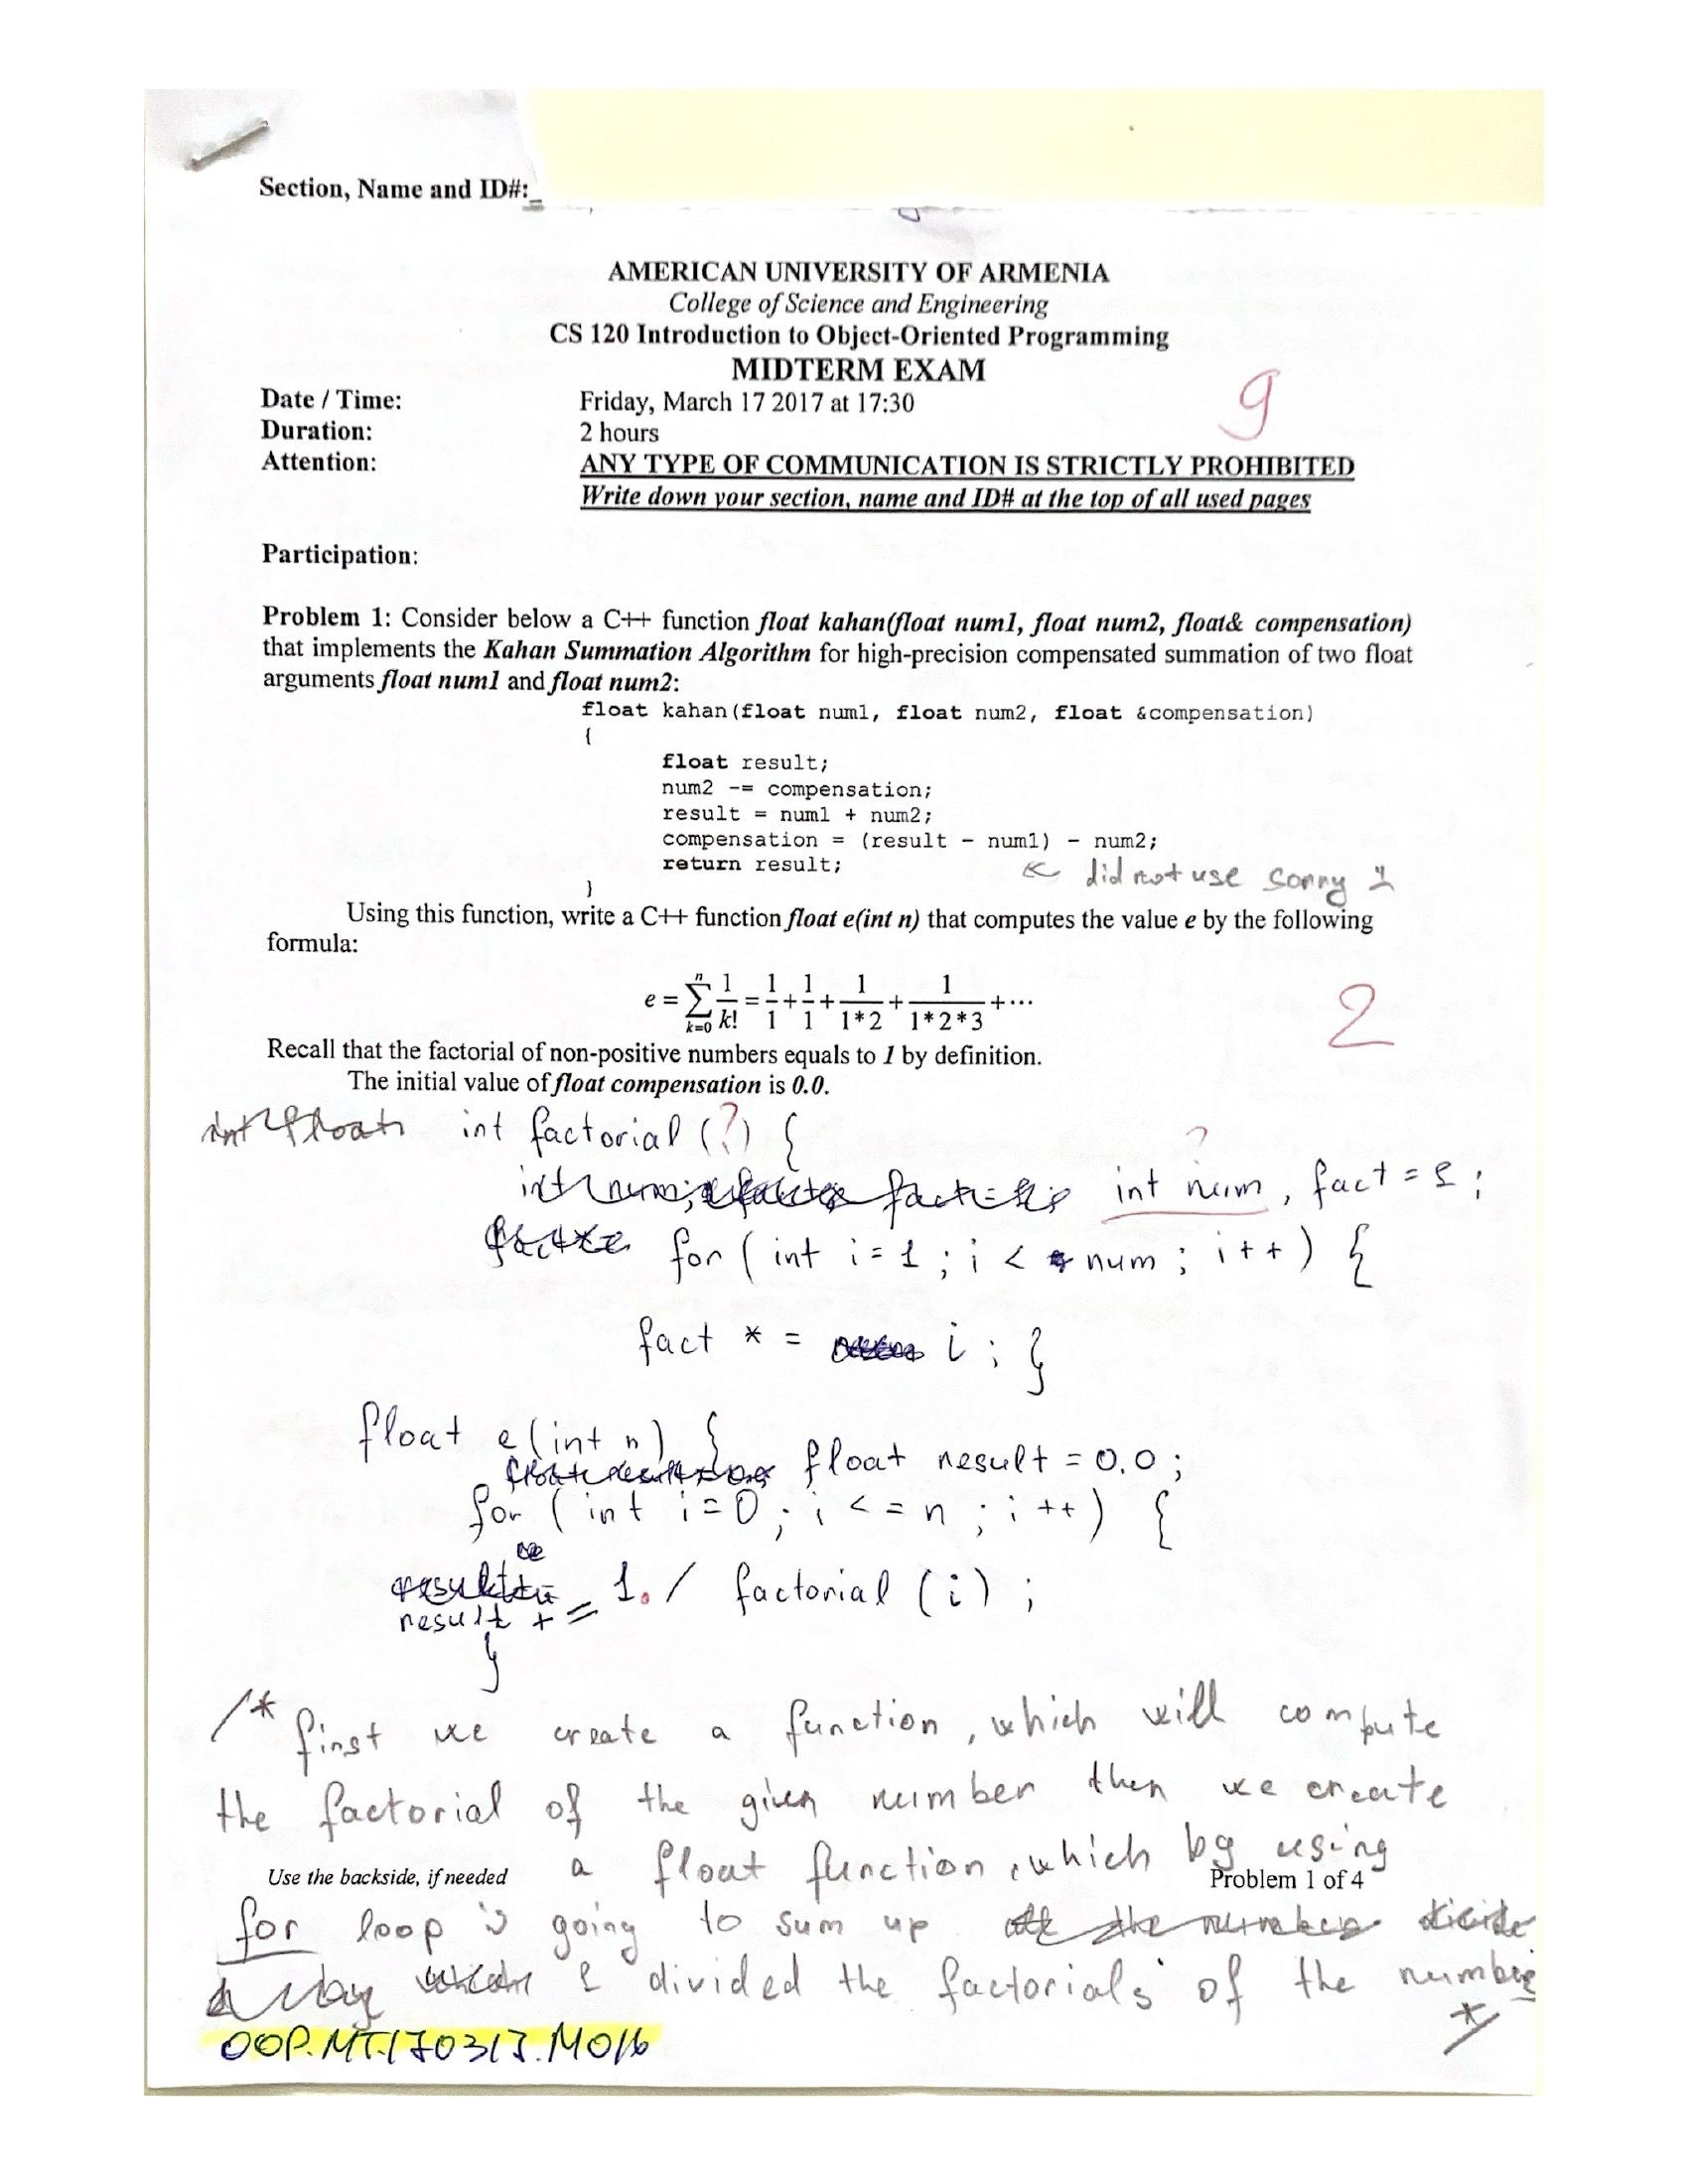 Section, Name and ID#:_
AMERICAN UNIVERSITY OF ARMENIA
College of Science and Engineering
CS 120 Introduction to Object-Oriented Programming
MIDTERM EXAM
9
Date / Time: Friday, March 17 2017 at 17:30
Duration: 2 hours
Attention: ANY TYPE OF COMMUNICATION IS STRICTLY PROHIBITED
Write down your section, name and ID# at the top of all used pages
Participation:
Problem 1: Consider below a C++ function float kahan(float num1, float num2, float& compensation)
that implements the Kahan Summation Algorithm for high-precision compensated summation of two float
arguments float num1 and float num2:
float kahan(float num1, float num2, float &compensation)
{
float result;
num2 -= compensation;
result = num1 + num2;
compensation = (result - num1) - num2;
return result;
← did not use sorry
}
Using this function, write a C++ function float e(int n) that computes the value e by the following
formula:
e = ∑ₖ₌₀ⁿ 1/k! = 1/1 + 1/1 + 1/1*2 + 1/1*2*3 + ⋯
2
Recall that the factorial of non-positive numbers equals to 1 by definition.
The initial value of float compensation is 0.0.
int factorial (?) {
?
int num, fact = 1;
for ( int i = 1 ; i < num ; i++ ) {
fact * = i ; }
float e(int n) {
float result = 0.0;
for ( int i=0 ; i <= n ; i++ ) {
result += 1. / factorial (i) ;
}
/* first we create a function, which will compute
the factorial of the given number then we create
a float function, which by using
Use the backside, if needed Problem 1 of 4
for loop is going to sum up
1 divided the factorials of the number
*/
OOP.MT.170317.M016